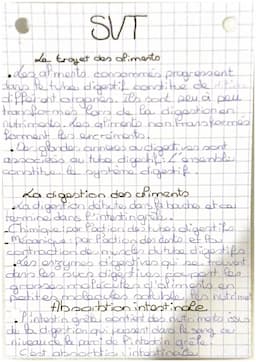 SVT
Le trajet des aliments
• Les aliments consommés progressent
dans le tube digestif constitué de
différent organes. Ils sont peu à peu
transformés lors de la digestion en
nutriments. Les aliments non transformés
forment les excréments.
• Les glandes annexes digestives sont
associées au tube digestif. L'ensemble
constitue le système digestif.
La digestion des aliments
• La digestion débute dans la bouche et ce
termine dans l'intestin grêle.
- Chimique: par l'action des tubes digestifs
- Mécanique: par l'action des dents et la
contraction de muscles du tube digestif
• Les enzymes digestives qui se trouvent
dans les sucs digestives coupent les
grosses molécules d'aliments en
petites molécules soluble: les nutriments
Absorbtion intestinale
• l'intestin grêle les nutriments issus
de la digestion qui passent dans le sang au
niveau de la paroi de l'intestin grêle:
C'est absorbtion intestinale